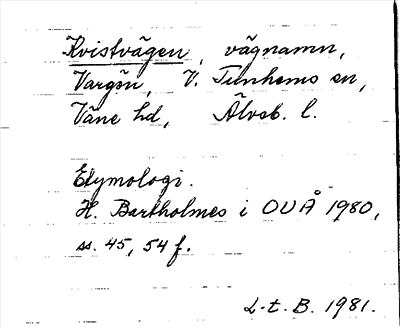 Kvistvägen, vägnamn,
Vargön, V. Tunhems sn,
Väne hd, Älvsb. l.
Etymologi.
H. Bartholmes i OUÅ 1980,
ss. 45, 54 f.
L-t. B. 1981.